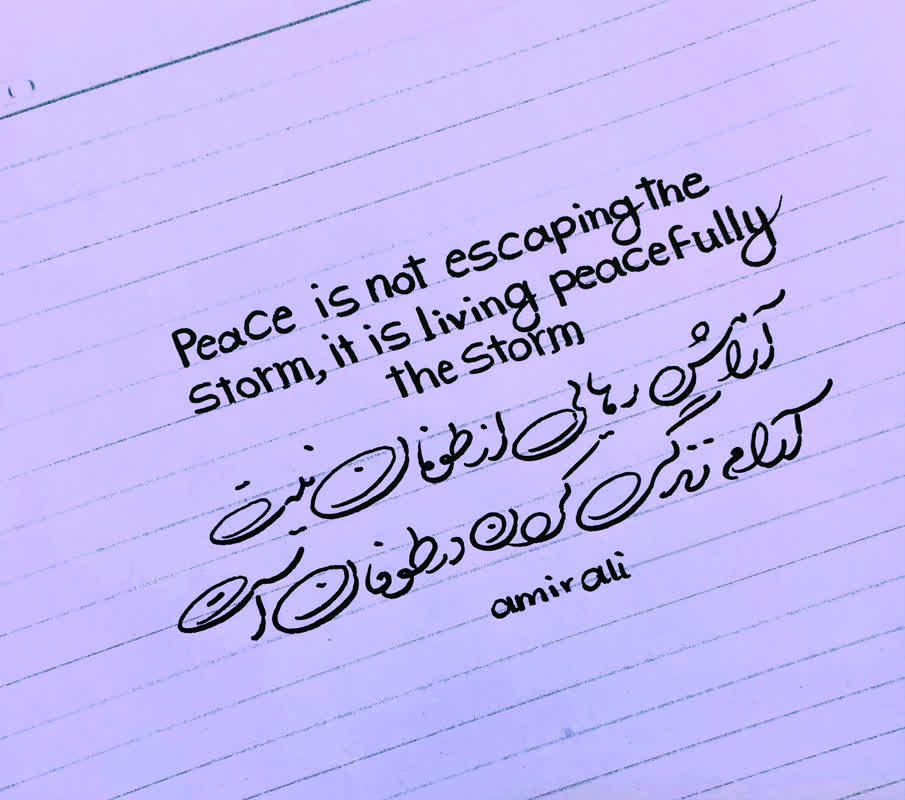 Peace is not escaping the
Storm, it is living peacefully
the storm
آرامش رهایی از طوفان نیست
آرام زندگی کردن در طوفان است
amir ali